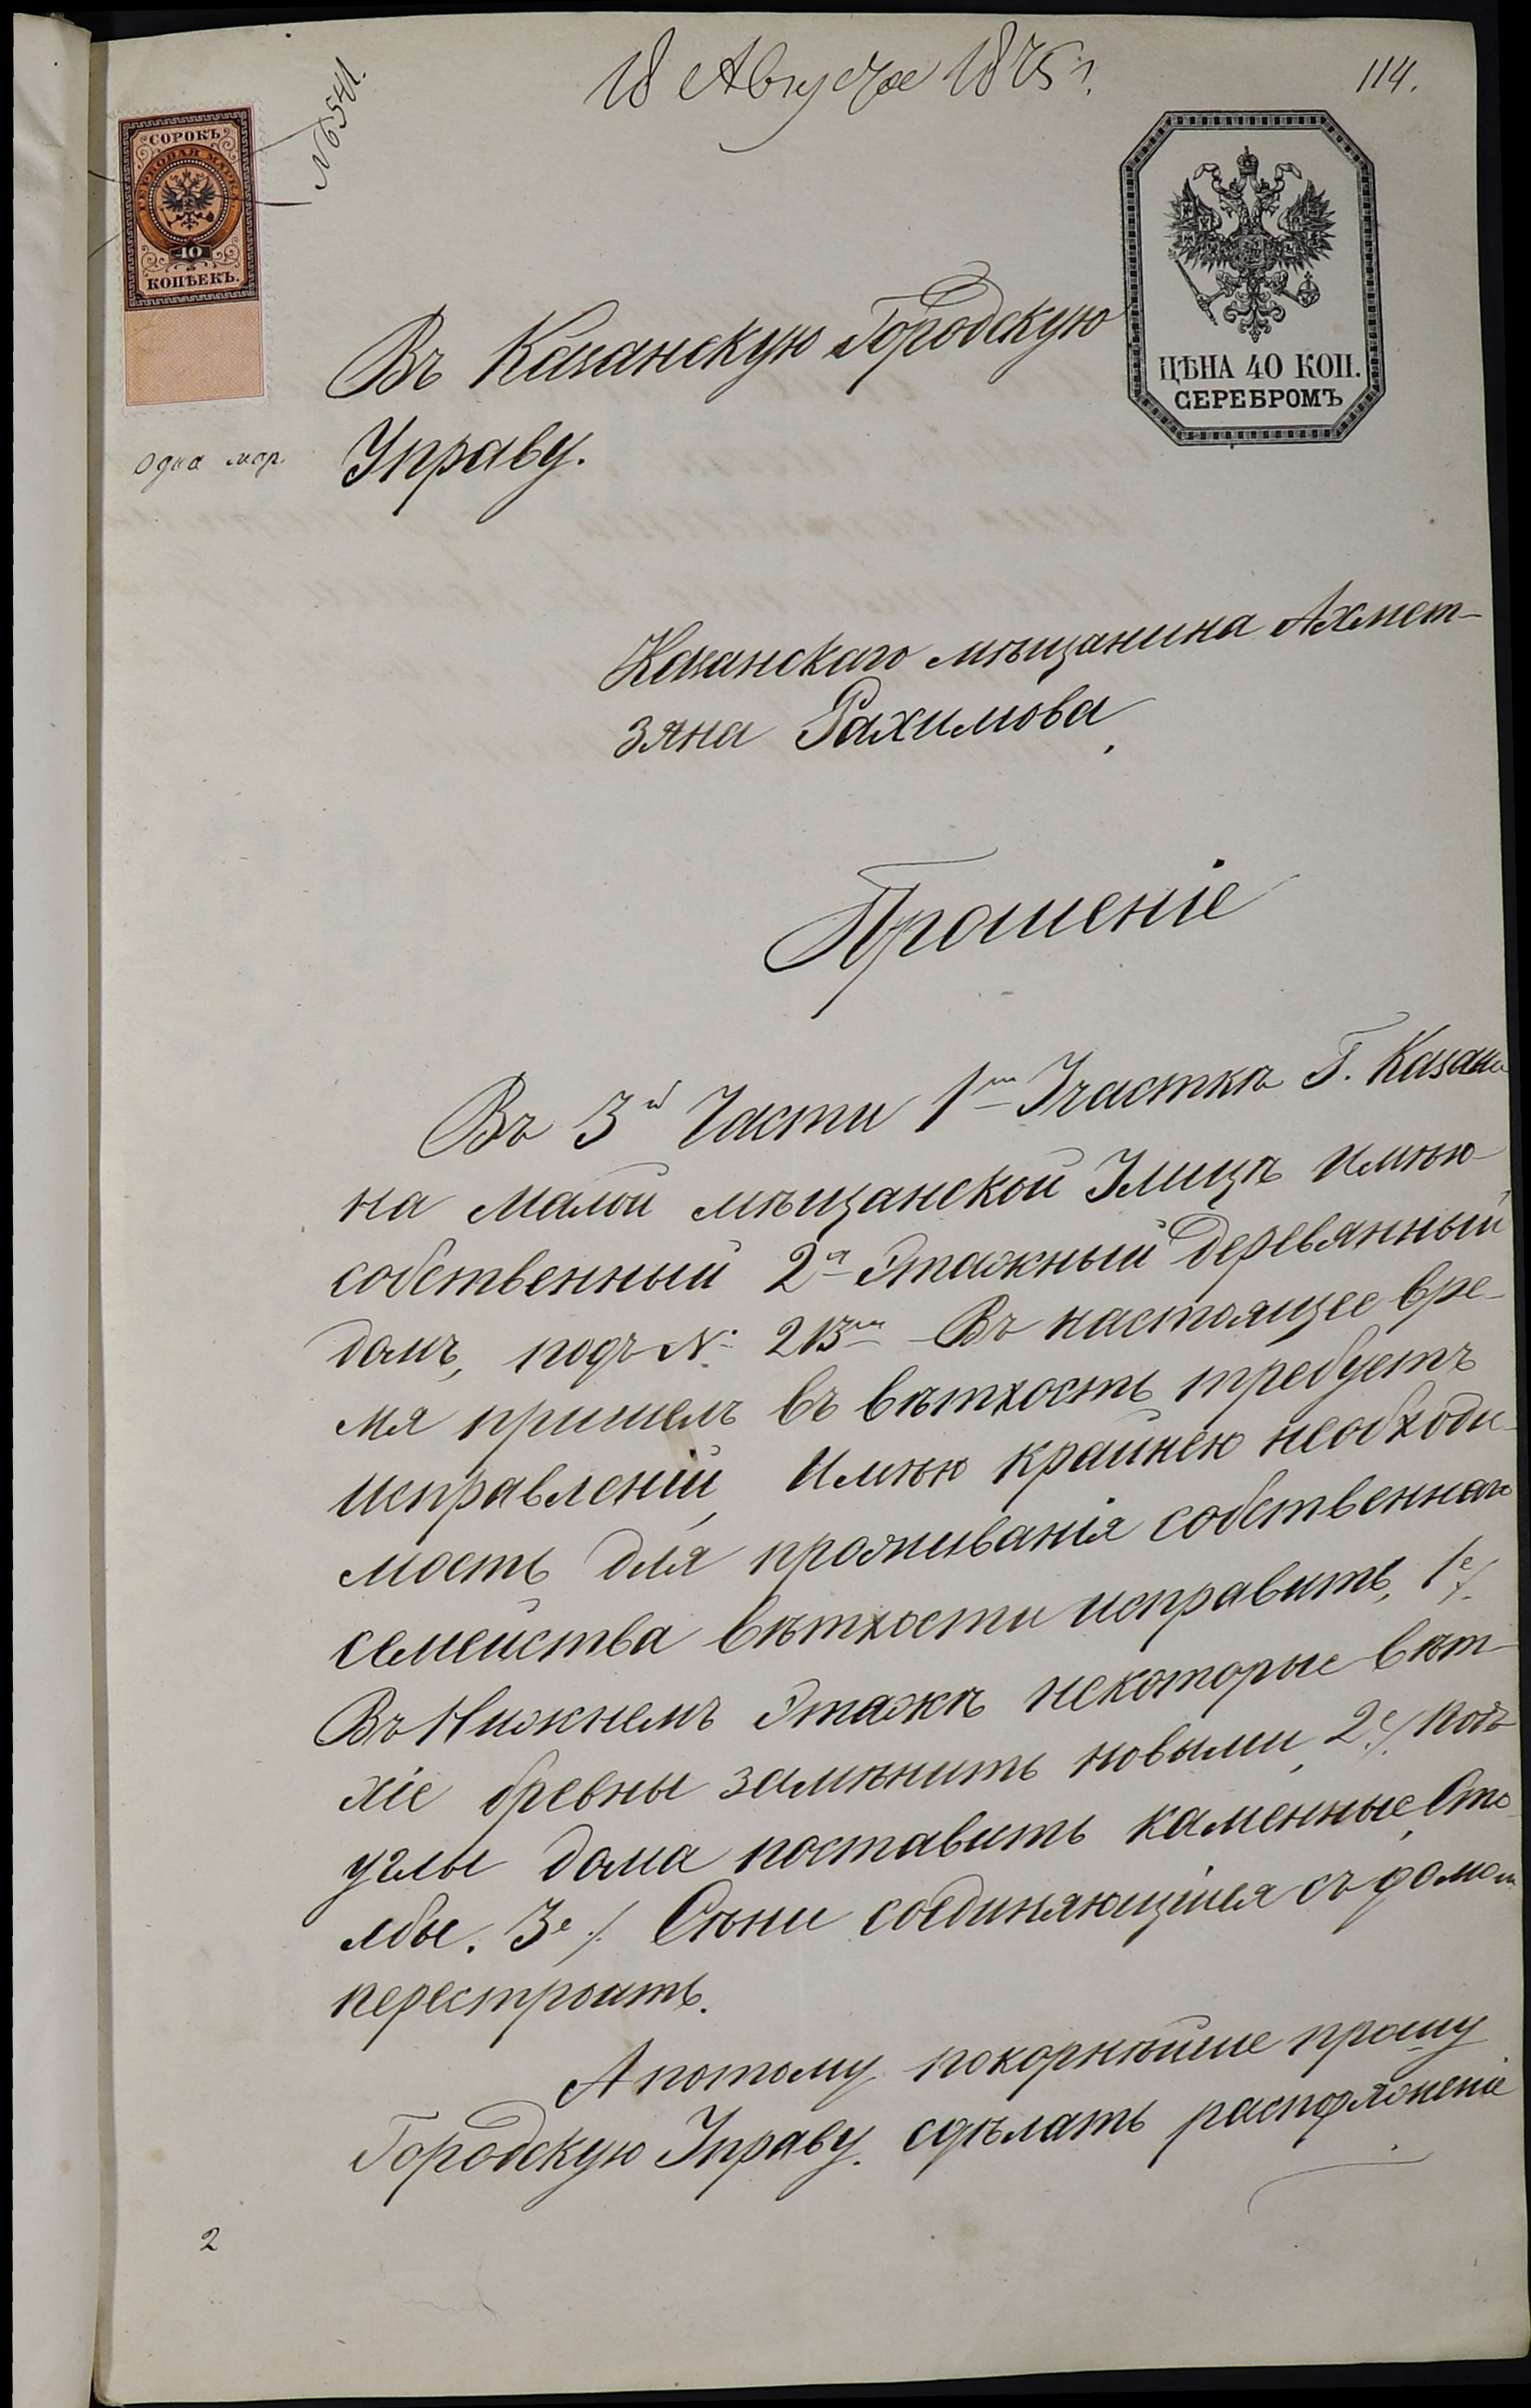 18 Августа 1875 г.
114.
№ 6541.
СОРОКЪ
ГЕРБОВАЯ МАРКА
40
КОПѢЕКЪ.
одна мар.
ЦѢНА 40 КОП.
СЕРЕБРОМЪ
Въ Казанскую Городскую
Управу.
Казанскаго мѣщанина Ахмет-
зяна Рахимова,
Прошеніе
Въ 3й Части 1м Участкѣ Г. Казани
на малой мѣщанской Улицѣ имѣю
собственный 2х Этажный деревянный
домъ, подъ № 213м Въ настоящее вре-
мя пришелъ въ вѣтхость требуетъ
исправленій, Имѣю крайнею необходи-
мость для проживанія собственнаго
семейства вѣтхости исправить, 1е/.
Въ Нижнемъ Этажѣ некоторые вѣт-
хіе бревны замѣнить новыми, 2е/. подъ
углы дома поставить каменные Сто-
лбы. 3е/. Сѣни соединяющіяся съ домом
перестроить.
А потому покорнѣйше прошу
Городскую Управу. сдѣлать распоряженіе
2